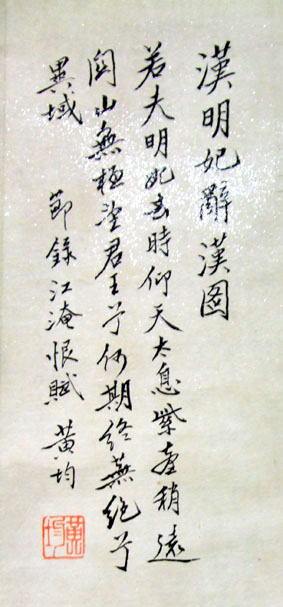 漢明妃辭漢圖
若夫明妃去時仰天太息紫臺稍遠
関山無極望君王兮何期終蕪絕兮
異域 節錄江淹恨賦 黃均
黃均